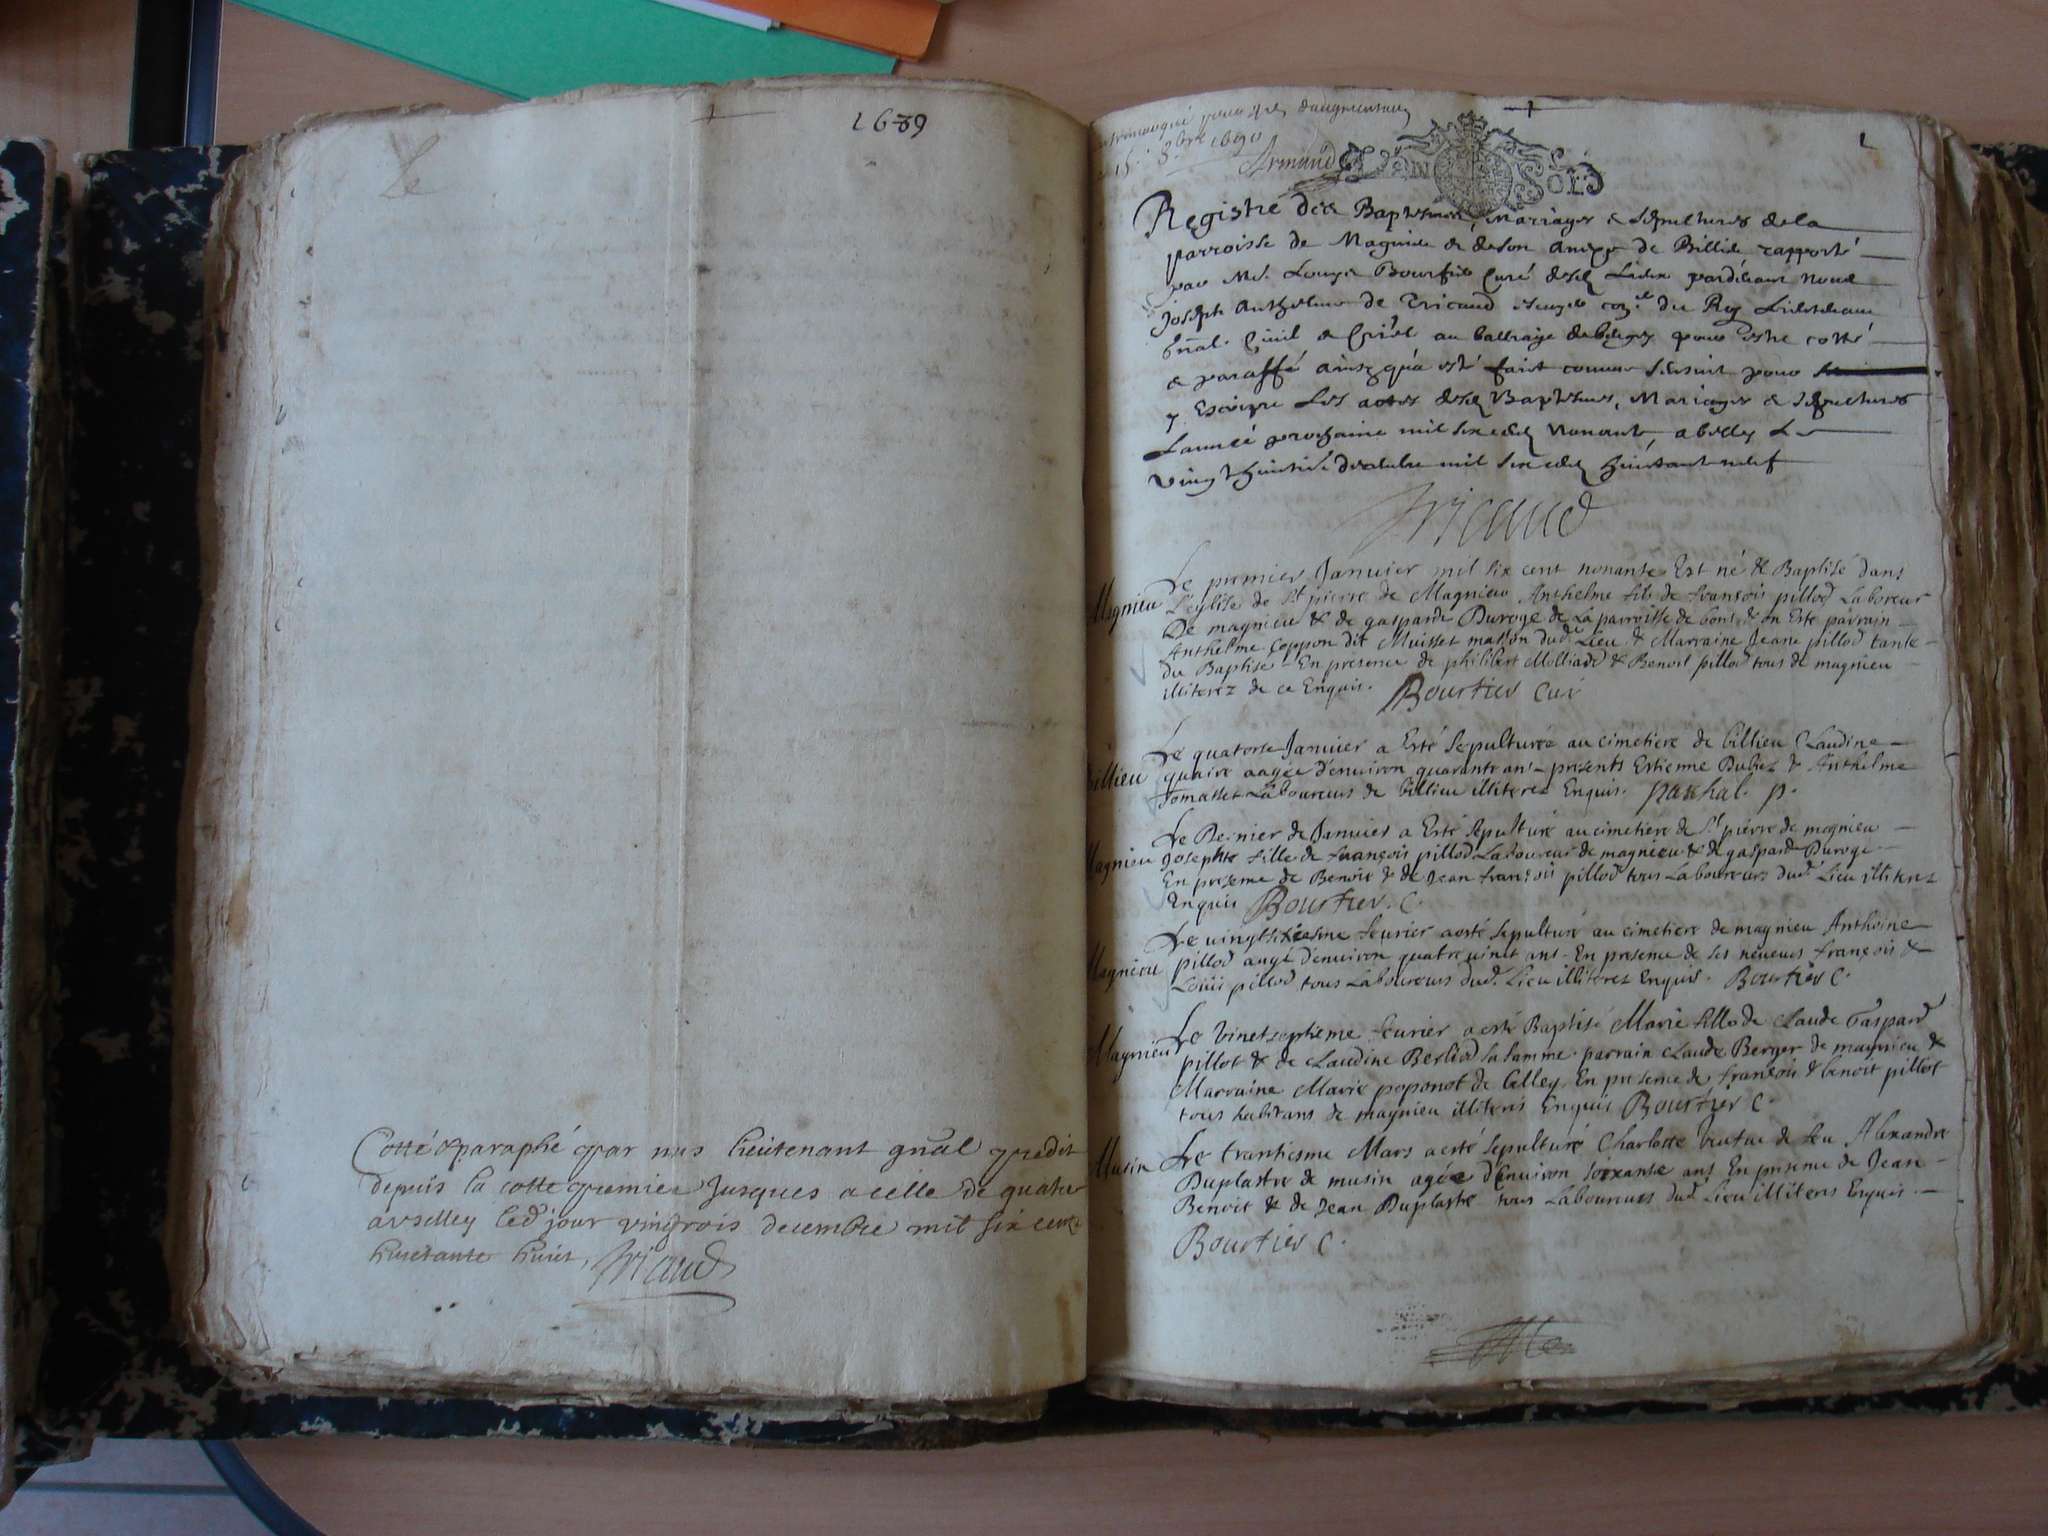 1689
Cotté & paraphé par nous lieutenant gnal que dit
depuis la cotte premier Jusques a celle de quatre
a belley led jour vingtrois decembre mil six cent
huictante huict, Tricaud
15 8bre 1690
Armand
UN SOLS
Registre des Baptesmes, Mariages & sepultures de la
parroisse de Magnieu & de son anexe de Billieu rapporté
par Mre Louys Bourfier Curé desd Lieux pardevant nous
Joseph Anthelme de Tricaud escuyer con.er du Roy Lieutenant
gnal. Civil & Crimel au balliage de bugey pour estre cotté
& paraffé ainsy qu'a esté faict comme s'ensuit pour
y Escripre Les actes desd Baptesmes, Mariages & sepultures
L'année prochaine mil six cent Nonante, a belley Le
vingt huictie decembre mil six cent huictante neuf
Tricaud
Magnieu Le premier Janvier mil six cent nonante Est né & Baptisé dans
L'eglise de St pierre de Magnieu Anthelme fils de françois pillod Laboreur
De magnieu & de gasparde Duroge de La parroisse de bons & on Este parrain
Anthelme Coppon dit Muisset masson dud Lieu & Marraine Jeane pillod tante
du Baptise - En presence de philibert Molliard & Benoit pillod tous de magnieu
illiterez de ce Enquis. Bourfier Curé
Billieu Le quatorse Janvier a Esté sepulturée au cimetiere de billieu Claudine
quaire aagée d'environ quarante an - presents Estienne Dubiez & Anthelme
Tomasset Laboureurs de billieu illiterez Enquis. paschal. p.
Magnieu Le Dernier de Janvier a Esté sepulturé au cimetiere de St pierre de magnieu
Josephte fille de françois pillod Laboureur de magnieu & de gasparde Duroge
En presence de Benoit & de Jean françois pillod tous Laboureurs dud. Lieu illiterez
Enquis Bourfier. C.
Magnieu Le vingtsixiesme fevrier a esté sepulturé au cimetiere de magnieu Anthoine
pillod aagé d'environ quatre vinct ans - En presence de ses neveus françois &
Loüis pillod tous Laboureurs dud. Lieu illiterez Enquis. Bourfier C.
Magnieu Le vinetseptieme fevrier a esté Baptisé Marie fille de Claude Gaspard
pillot & de Claudine Berliod sa famme. parrain Claude Berger de magnieu &
Marraine Marie poponot de belley En presence de françois & benoit pillot
tous habitans de magnieu illiterés Enquis Bourfier C.
Musin Le trantiesme Mars a esté sepulturé Charlotte veufue de feu Alexandre
Duplastre de musin agée d'Environ soixante ans En presence de Jean
Benoit & de Jean Duplastre tous Laboureurs dud Lieu illiterés Enquis.
Bourfier C.